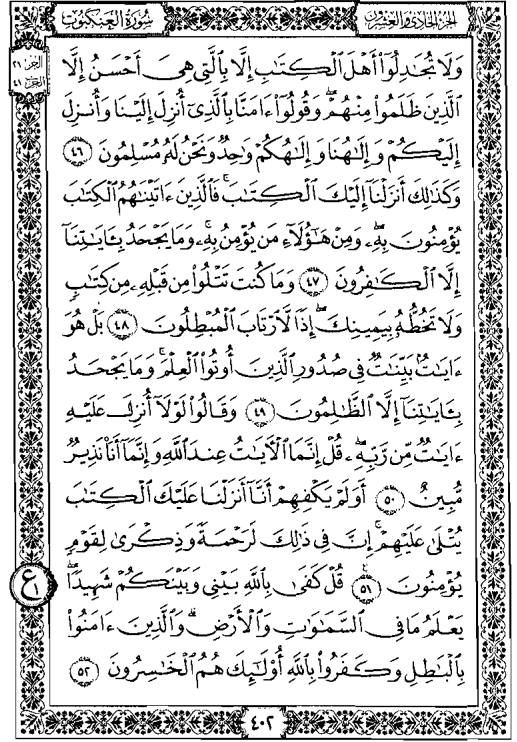 الجزء الحادي والعشرون
سُورَةُ العَنكَبُوت
الجزء ٢١
الحزب ٤١
وَلَا تُجَٰدِلُوٓا۟ أَهْلَ ٱلْكِتَٰبِ إِلَّا بِٱلَّتِى هِىَ أَحْسَنُ إِلَّا
ٱلَّذِينَ ظَلَمُوا۟ مِنْهُمْ ۖ وَقُولُوٓا۟ ءَامَنَّا بِٱلَّذِىٓ أُنزِلَ إِلَيْنَا وَأُنزِلَ
إِلَيْكُمْ وَإِلَٰهُنَا وَإِلَٰهُكُمْ وَٰحِدٌ وَنَحْنُ لَهُۥ مُسْلِمُونَ ٤٦
وَكَذَٰلِكَ أَنزَلْنَآ إِلَيْكَ ٱلْكِتَٰبَ ۚ فَٱلَّذِينَ ءَاتَيْنَٰهُمُ ٱلْكِتَٰبَ
يُؤْمِنُونَ بِهِۦ ۖ وَمِنْ هَٰٓؤُلَآءِ مَن يُؤْمِنُ بِهِۦ ۚ وَمَا يَجْحَدُ بِـَٔايَٰتِنَآ
إِلَّا ٱلْكَٰفِرُونَ ٤٧ وَمَا كُنتَ تَتْلُوا۟ مِن قَبْلِهِۦ مِن كِتَٰبٍ
وَلَا تَخُطُّهُۥ بِيَمِينِكَ ۖ إِذًا لَّٱرْتَابَ ٱلْمُبْطِلُونَ ٤٨ بَلْ هُوَ
ءَايَٰتٌۢ بَيِّنَٰتٌ فِى صُدُورِ ٱلَّذِينَ أُوتُوا۟ ٱلْعِلْمَ ۚ وَمَا يَجْحَدُ
بِـَٔايَٰتِنَآ إِلَّا ٱلظَّٰلِمُونَ ٤٩ وَقَالُوا۟ لَوْلَآ أُنزِلَ عَلَيْهِ
ءَايَٰتٌ مِّن رَّبِّهِۦ ۖ قُلْ إِنَّمَا ٱلْـَٔايَٰتُ عِندَ ٱللَّهِ وَإِنَّمَآ أَنَا۠ نَذِيرٌ
مُّبِينٌ ٥٠ أَوَلَمْ يَكْفِهِمْ أَنَّآ أَنزَلْنَا عَلَيْكَ ٱلْكِتَٰبَ
يُتْلَىٰ عَلَيْهِمْ ۚ إِنَّ فِى ذَٰلِكَ لَرَحْمَةً وَذِكْرَىٰ لِقَوْمٍ
يُؤْمِنُونَ ٥١ قُلْ كَفَىٰ بِٱللَّهِ بَيْنِى وَبَيْنَكُمْ شَهِيدًا ۖ
ع
يَعْلَمُ مَا فِى ٱلسَّمَٰوَٰتِ وَٱلْأَرْضِ ۗ وَٱلَّذِينَ ءَامَنُوا۟
بِٱلْبَٰطِلِ وَكَفَرُوا۟ بِٱللَّهِ أُو۟لَٰٓئِكَ هُمُ ٱلْخَٰسِرُونَ ٥٢
٤٠٢